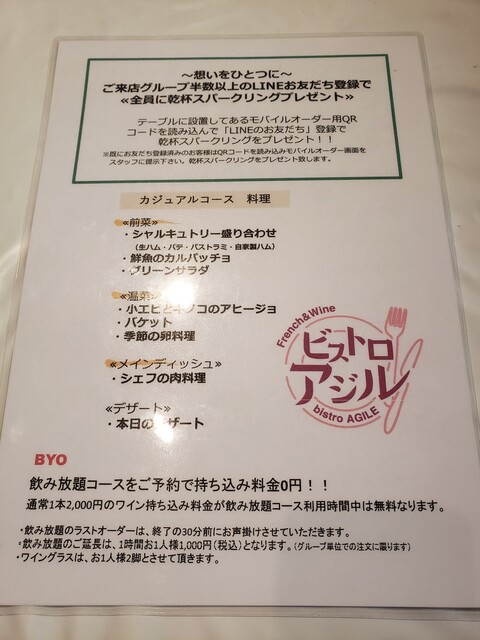 ～想いをひとつに～
ご来店グループ半数以上のLINEお友だち登録で
≪全員に乾杯スパークリングプレゼント≫
テーブルに設置してあるモバイルオーダー用QR
コードを読み込んで「LINEのお友だち」登録で
乾杯スパークリングをプレゼント！！
※既にお友だち登録済みのお客様はQRコードを読み込みモバイルオーダー画面を
スタッフに提示下さい。乾杯スパークリングをプレゼント致します。
カジュアルコース 料理
≪前菜≫
・シャルキュトリー盛り合わせ
（生ハム・パテ・パストラミ・自家製ハム）
・鮮魚のカルパッチョ
・グリーンサラダ
≪温菜≫
・小エビとキノコのアヒージョ
・バケット
・季節の卵料理
≪メインディッシュ≫
・シェフの肉料理
≪デザート≫
・本日のデザート
French&Wine
ビストロ
アジル
bistro AGILE
BYO
飲み放題コースをご予約で持ち込み料金0円！！
通常1本2,000円のワイン持ち込み料金が飲み放題コース利用時間中は無料なります。
・飲み放題のラストオーダーは、終了の30分前にお声掛けさせていただきます。
・飲み放題のご延長は、1時間お1人様1,000円(税込)となります。(グループ単位での注文に限ります)
・ワイングラスは、お1人様2脚とさせて頂きます。